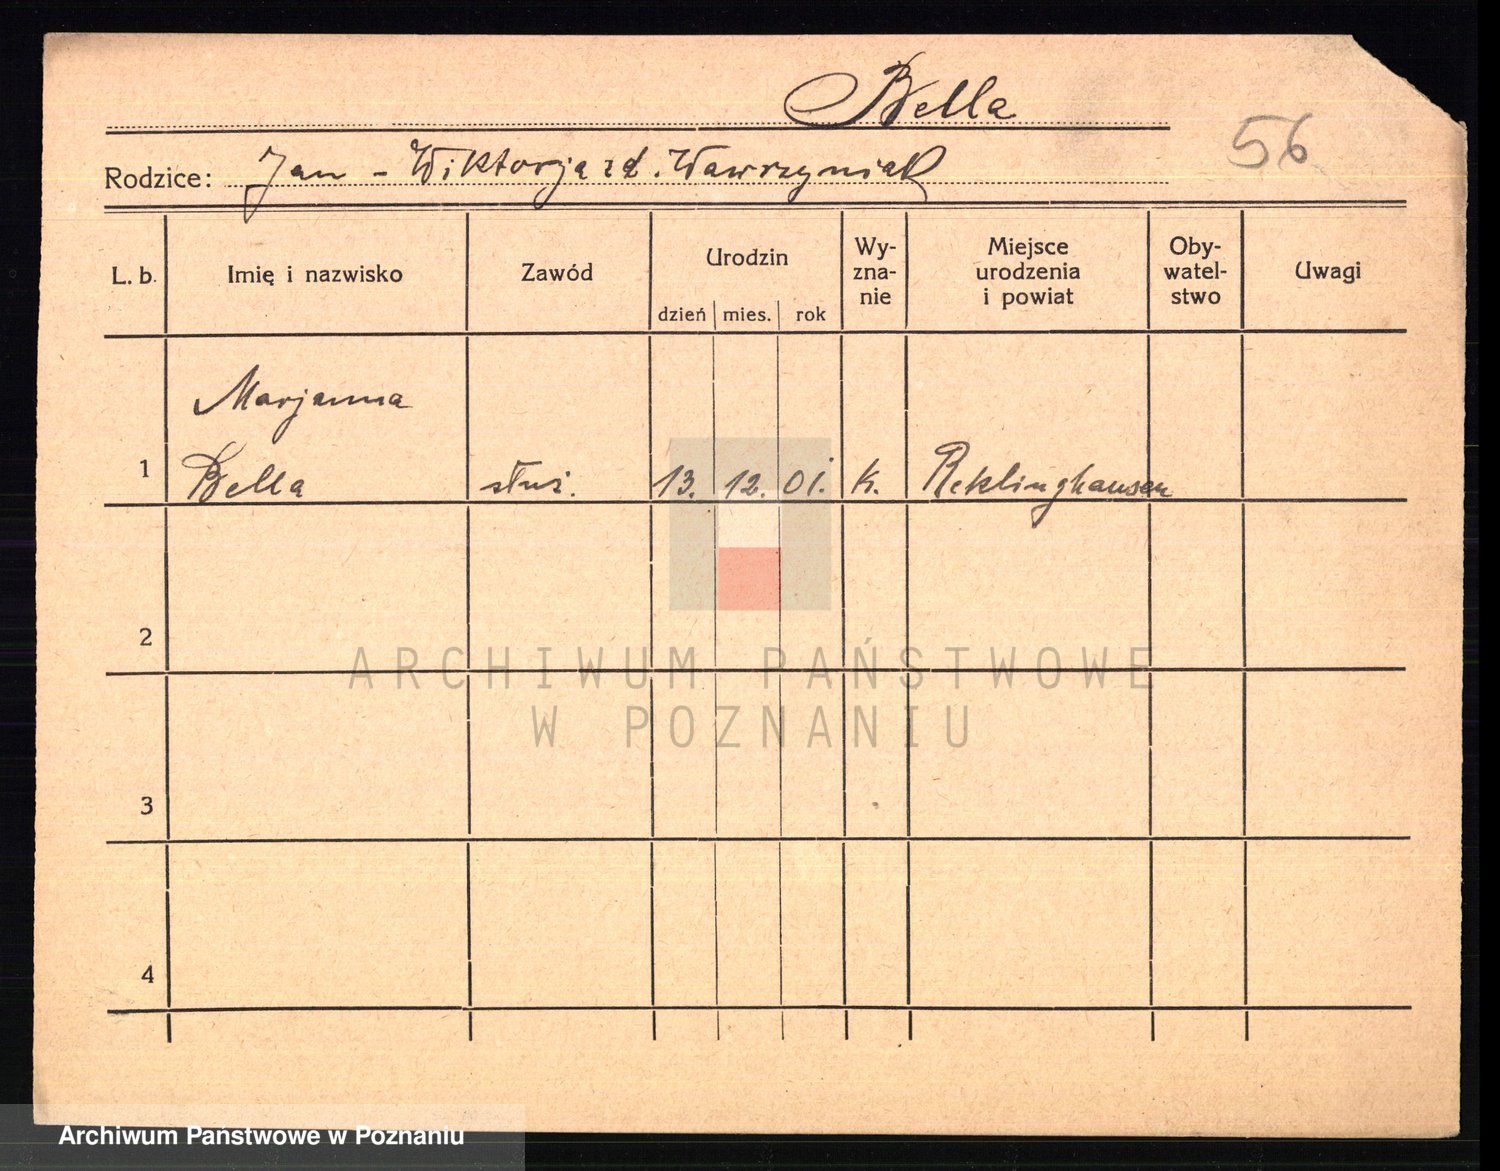 Bella
56
Rodzice: Jan - Wiktorja zd. Wawrzyniak
L. b. Imię i nazwisko Zawód Urodzin dzień mies. rok Wy-zna-nie Miejsce urodzenia i powiat Oby-watel-stwo Uwagi
Marjanna
1 Bella służ. 13. 12. 01. k. Reklinghausen
2
ARCHIWUM PAŃSTWOWE
W POZNANIU
3
4
Archiwum Państwowe w Poznaniu